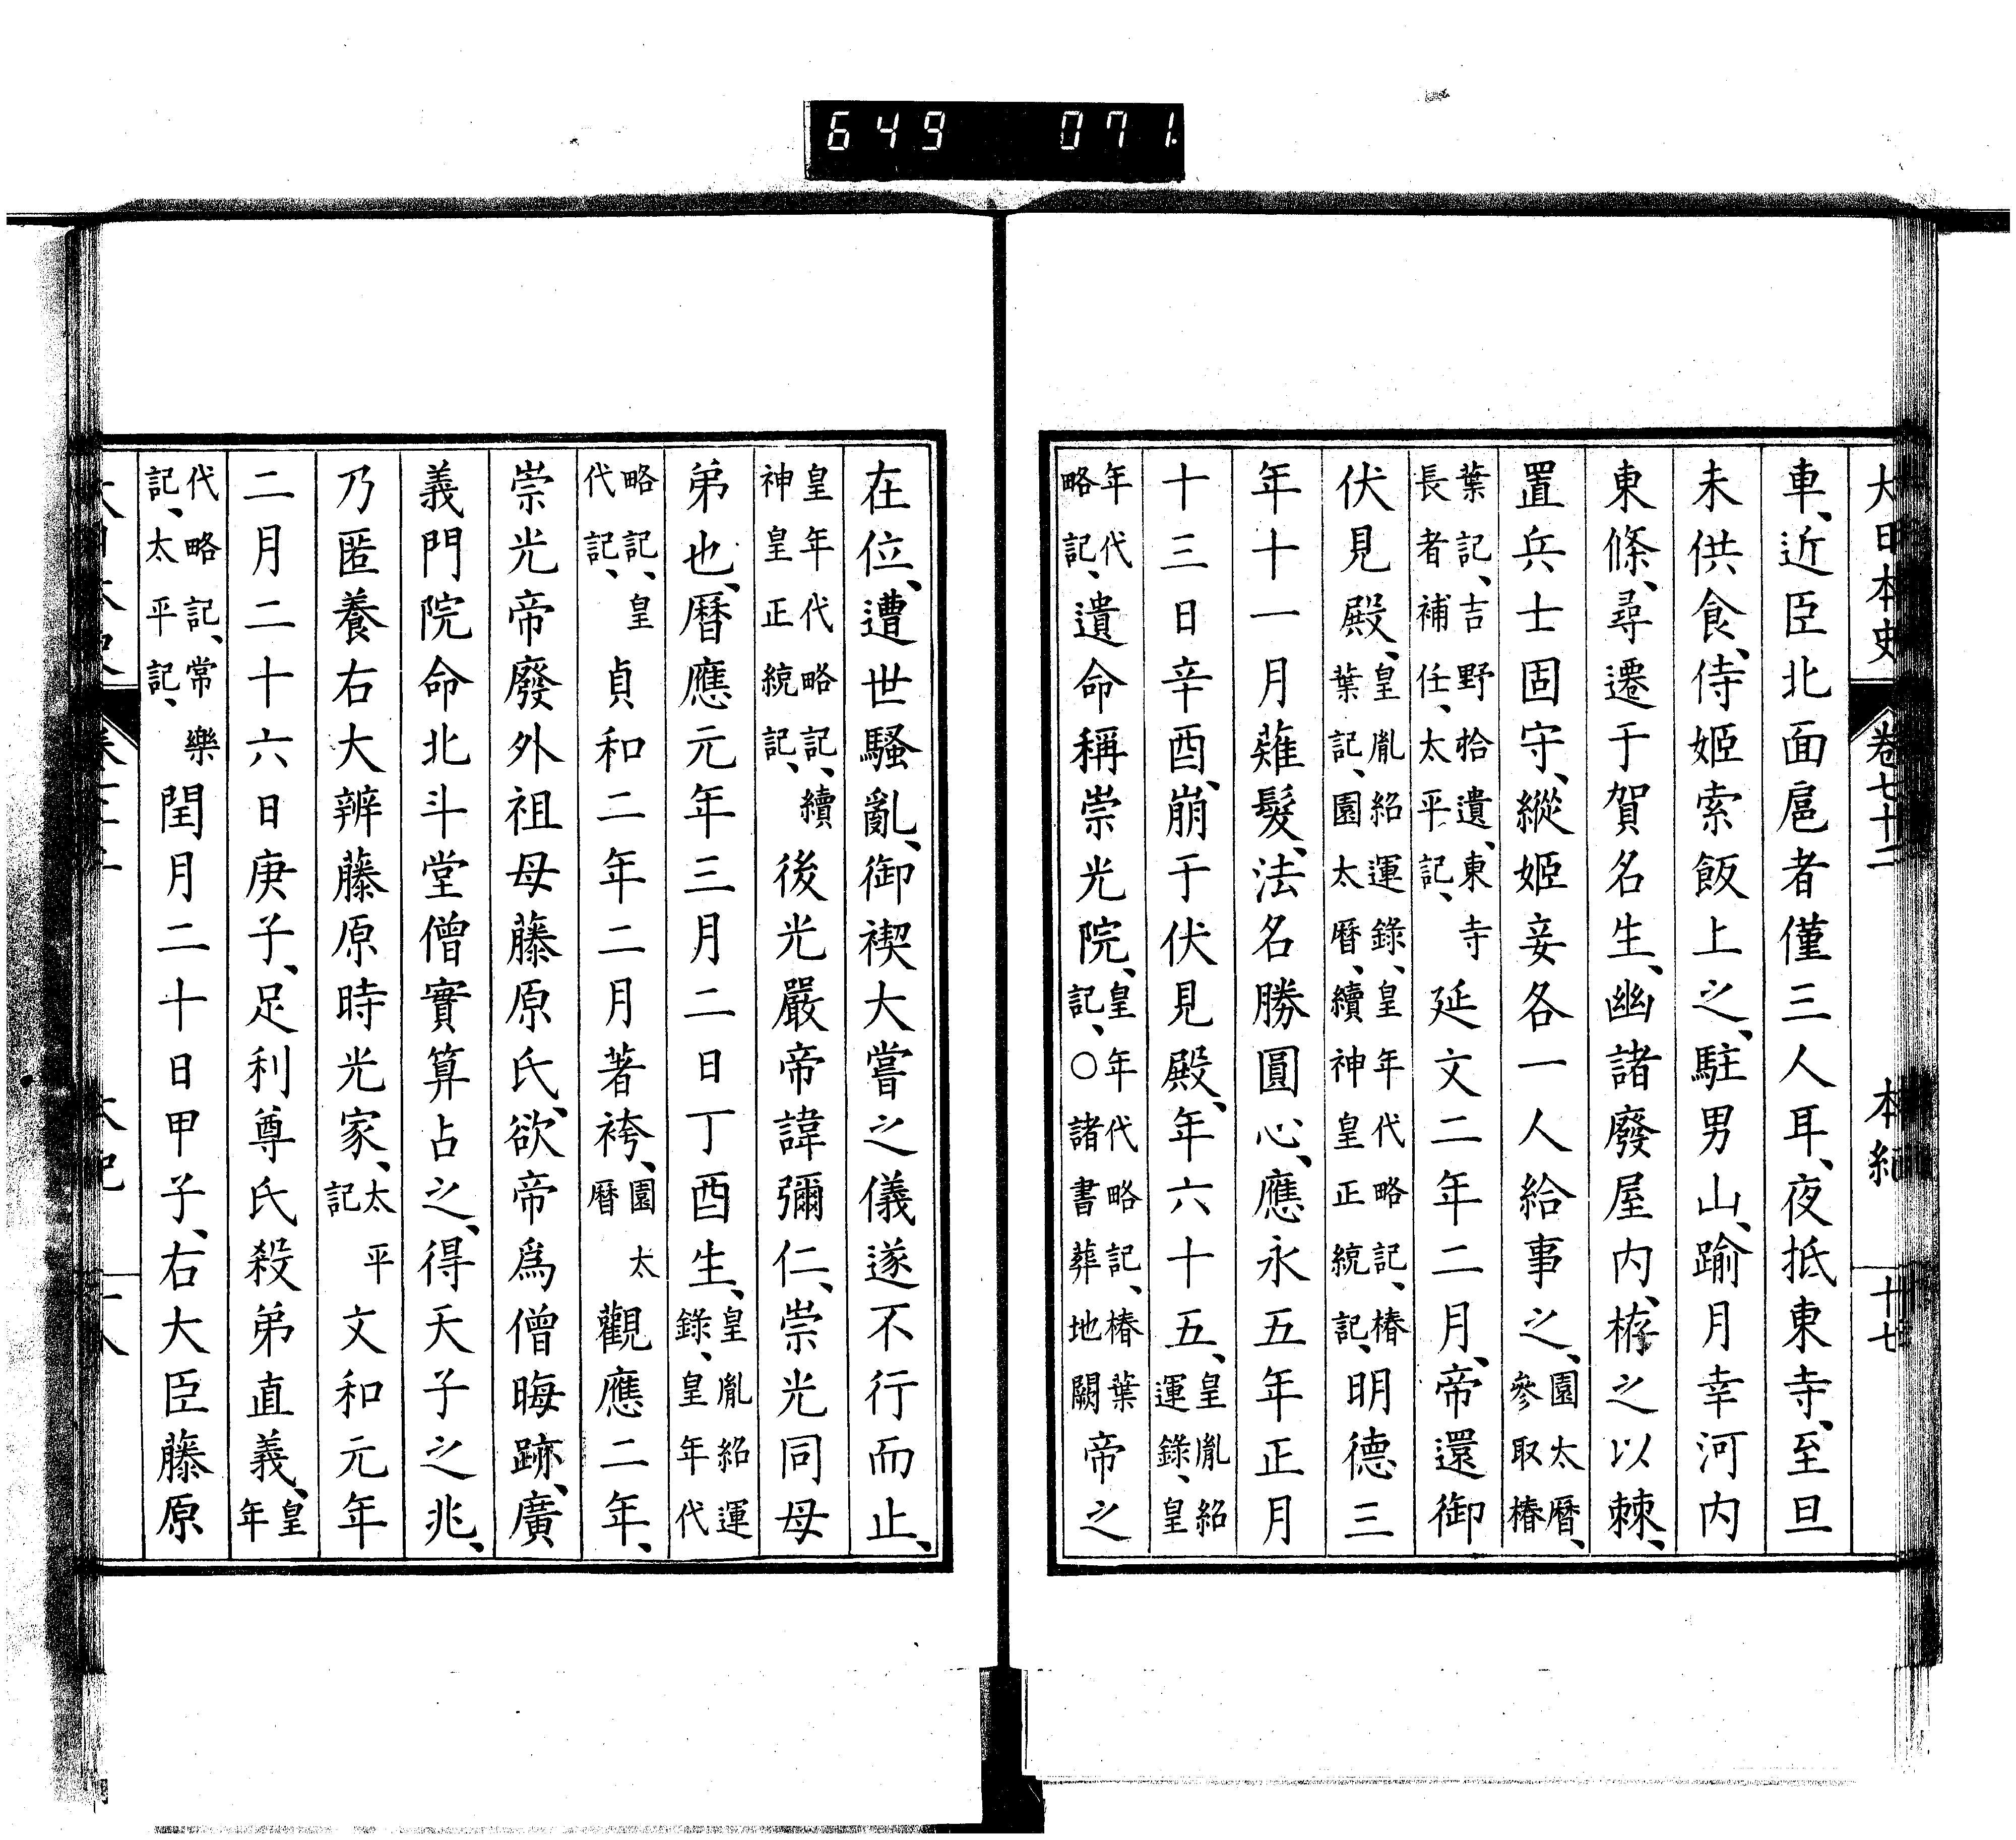 649 071
大日本史 卷七十二 本紀 十七
車、近臣北面扈者僅三人耳、夜抵東寺、至旦
未供食、侍姬索飯上之、駐男山、踰月幸河內
東條、尋遷于賀名生、幽諸廢屋內、栫之以棘、
置兵士固守、縱姬妾各一人給事之、園太曆、參取椿
葉記、吉野拾遺、東寺長者補任、太平記、延文二年二月、帝還御
伏見殿、皇胤紹運錄、皇年代略記、椿葉記、園太曆、續神皇正統記、明德三
年十一月薙髮、法名勝圓心、應永五年正月
十三日辛酉、崩于伏見殿、年六十五、皇胤紹運錄、皇
年代略記、遺命稱崇光院、皇年代略記、椿葉記、○諸書葬地闕帝之
在位、遭世騷亂、御禊大嘗之儀遂不行而止、
皇年代略記、續神皇正統記、後光嚴帝諱彌仁、崇光同母
弟也、曆應元年三月二日丁酉生、皇胤紹運錄、皇年代
略記、皇代記、貞和二年二月著袴、園太曆觀應二年、
崇光帝廢外祖母藤原氏、欲帝爲僧晦跡、廣
義門院命北斗堂僧實算占之、得天子之兆、
乃匿養右大辨藤原時光家、太平記文和元年
二月二十六日庚子、足利尊氏殺弟直義、皇年
代略記、常樂記、太平記、閏月二十日甲子、右大臣藤原